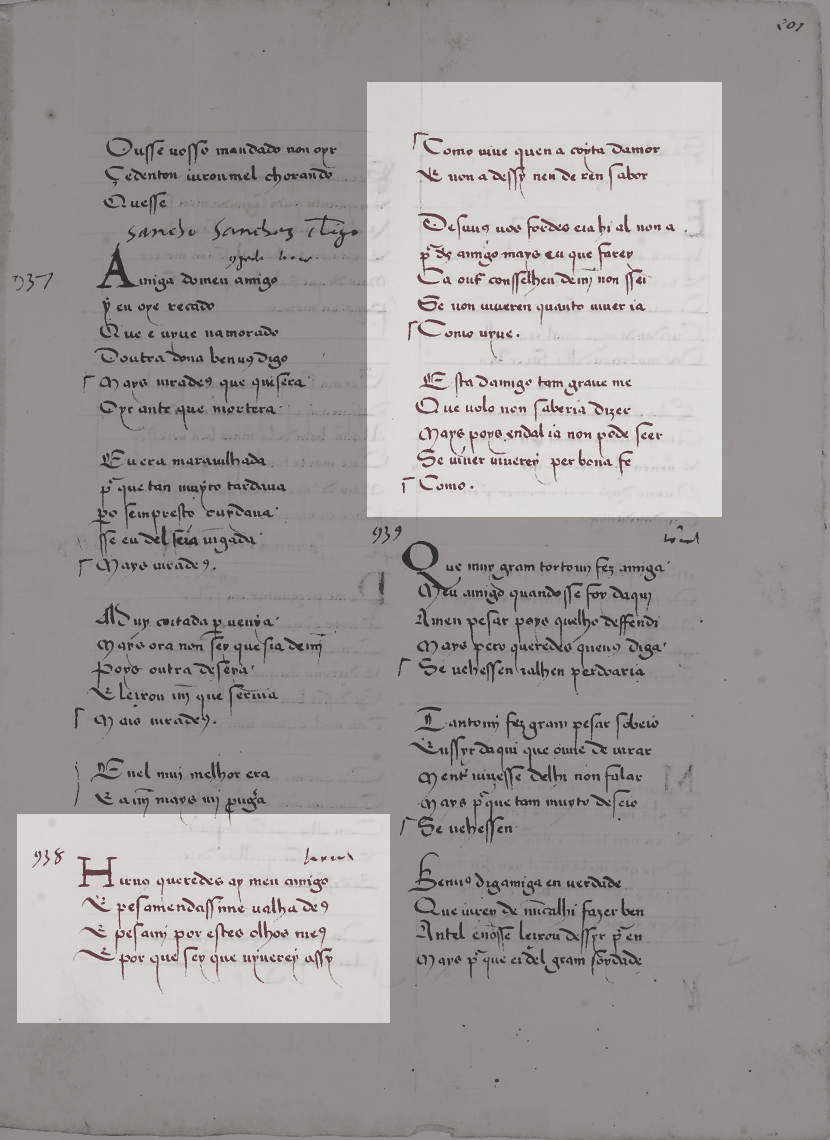 201
Ousse uosso mandado non oyr
Çedenton iuroumel chorando
Quesse
Sancho Sanchez
937
Amiga do meu amigo
oy eu oye recado
Que e uyue namorado
Doutra dona ben uꝯ digo
Mays uiradeꝯ que quisera
Oyr ante que mortera
Eu era marauilhada
por que tan muyto tardaua
pero sempresto cuydaua
sse eu del seia uīgada
Mays uiradeꝯ.
Muy coitada per uenya
Mays ora non sey que sia de mī
Poys outra desera
E leixou mī que seruia
Mais uiradeꝯ.
E nel mui melhor era
E a mī mays mi
938
Hiruꝯ queredes ay meu amigo
E pesamendassime ualha deꝯ
E pesami por estes olhos meꝯ
E por que sey que uyuerey assy
Como uiue quen a coyta damor
E non a dessy nen de ren sabor
Desuuꝯ uos fordes eia hi al non a
par dꝯ amigo mays eu que farey
Ca outro conselhen de mī non ssei
Se non uiueren quanto uiuer ia
Como uyue.
Esta damigo tam graue me
Que uolo non saberia dizer
Mays poys endal ia non pode seer
Se uiuer uiuerey per bona fe
Como.
939
Que muy gram torto mi fez amiga
Meu amigo quandosse foy daqui
A meu pesar poys quelho deffendi
Mays pero queredes quenuꝯ diga
Se uehessen ialhen perdoaria
Tanto mi fez gram pesar sobeio
Enssyr daqui que ouue de uirar
Mentre uiuesse deltu non falar
Mays por que tam muyto deseio
Se uehessen
Benuꝯ digamiga en uerdade
Que iurey de nūcalhi fazer ben
Antel e nosse leixou dessyr por en
Mays por que ei del gram soydade